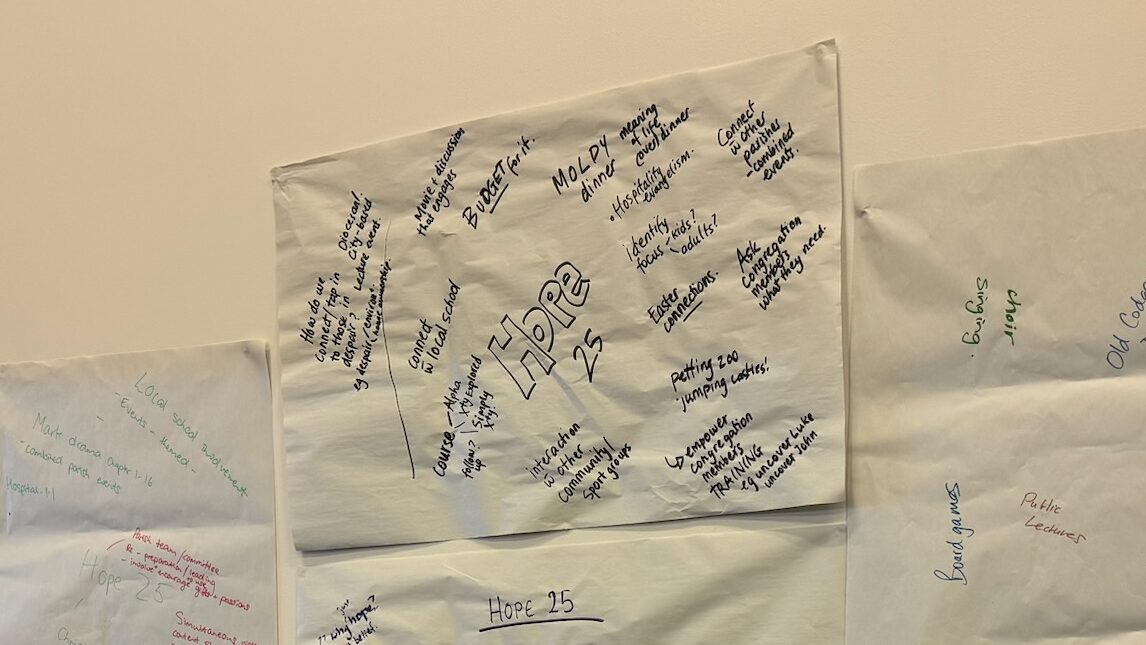 Movie + discussion
that engages
BUDGET for it.
MOLPY
dinner
meaning
of life
over dinner
• Hospitality
evangelism.
Connect
w other
parishes
- combined
events.
How do we
connect/tap in
to those in
despair?
eg despair/environ.
home ownership.
Diocesan.
City-based
Lecture event.
Identify
focus
kids?
adults?
Ask
congregation
members
what they need.
Easter
connections.
connect
w local school
HOPE
25
Course
follow?
up
Alpha
Xty Explored
Simply
Xty?
interaction
w other
community/
sport groups
Petting zoo
jumping castles!
empower
congregation
members
TRAINING
eg uncover Luke
uncover John
Local school involvement
- Events - themed -
Mark drama Chaptr 1-16
- combined parish events
Hospital
Parish team/committee
Re - preparation/leading
Hope 25
Simultaneous
HOPE 25
why hope?
belief.
choir
singing.
Board games
Public
Lectures
Old